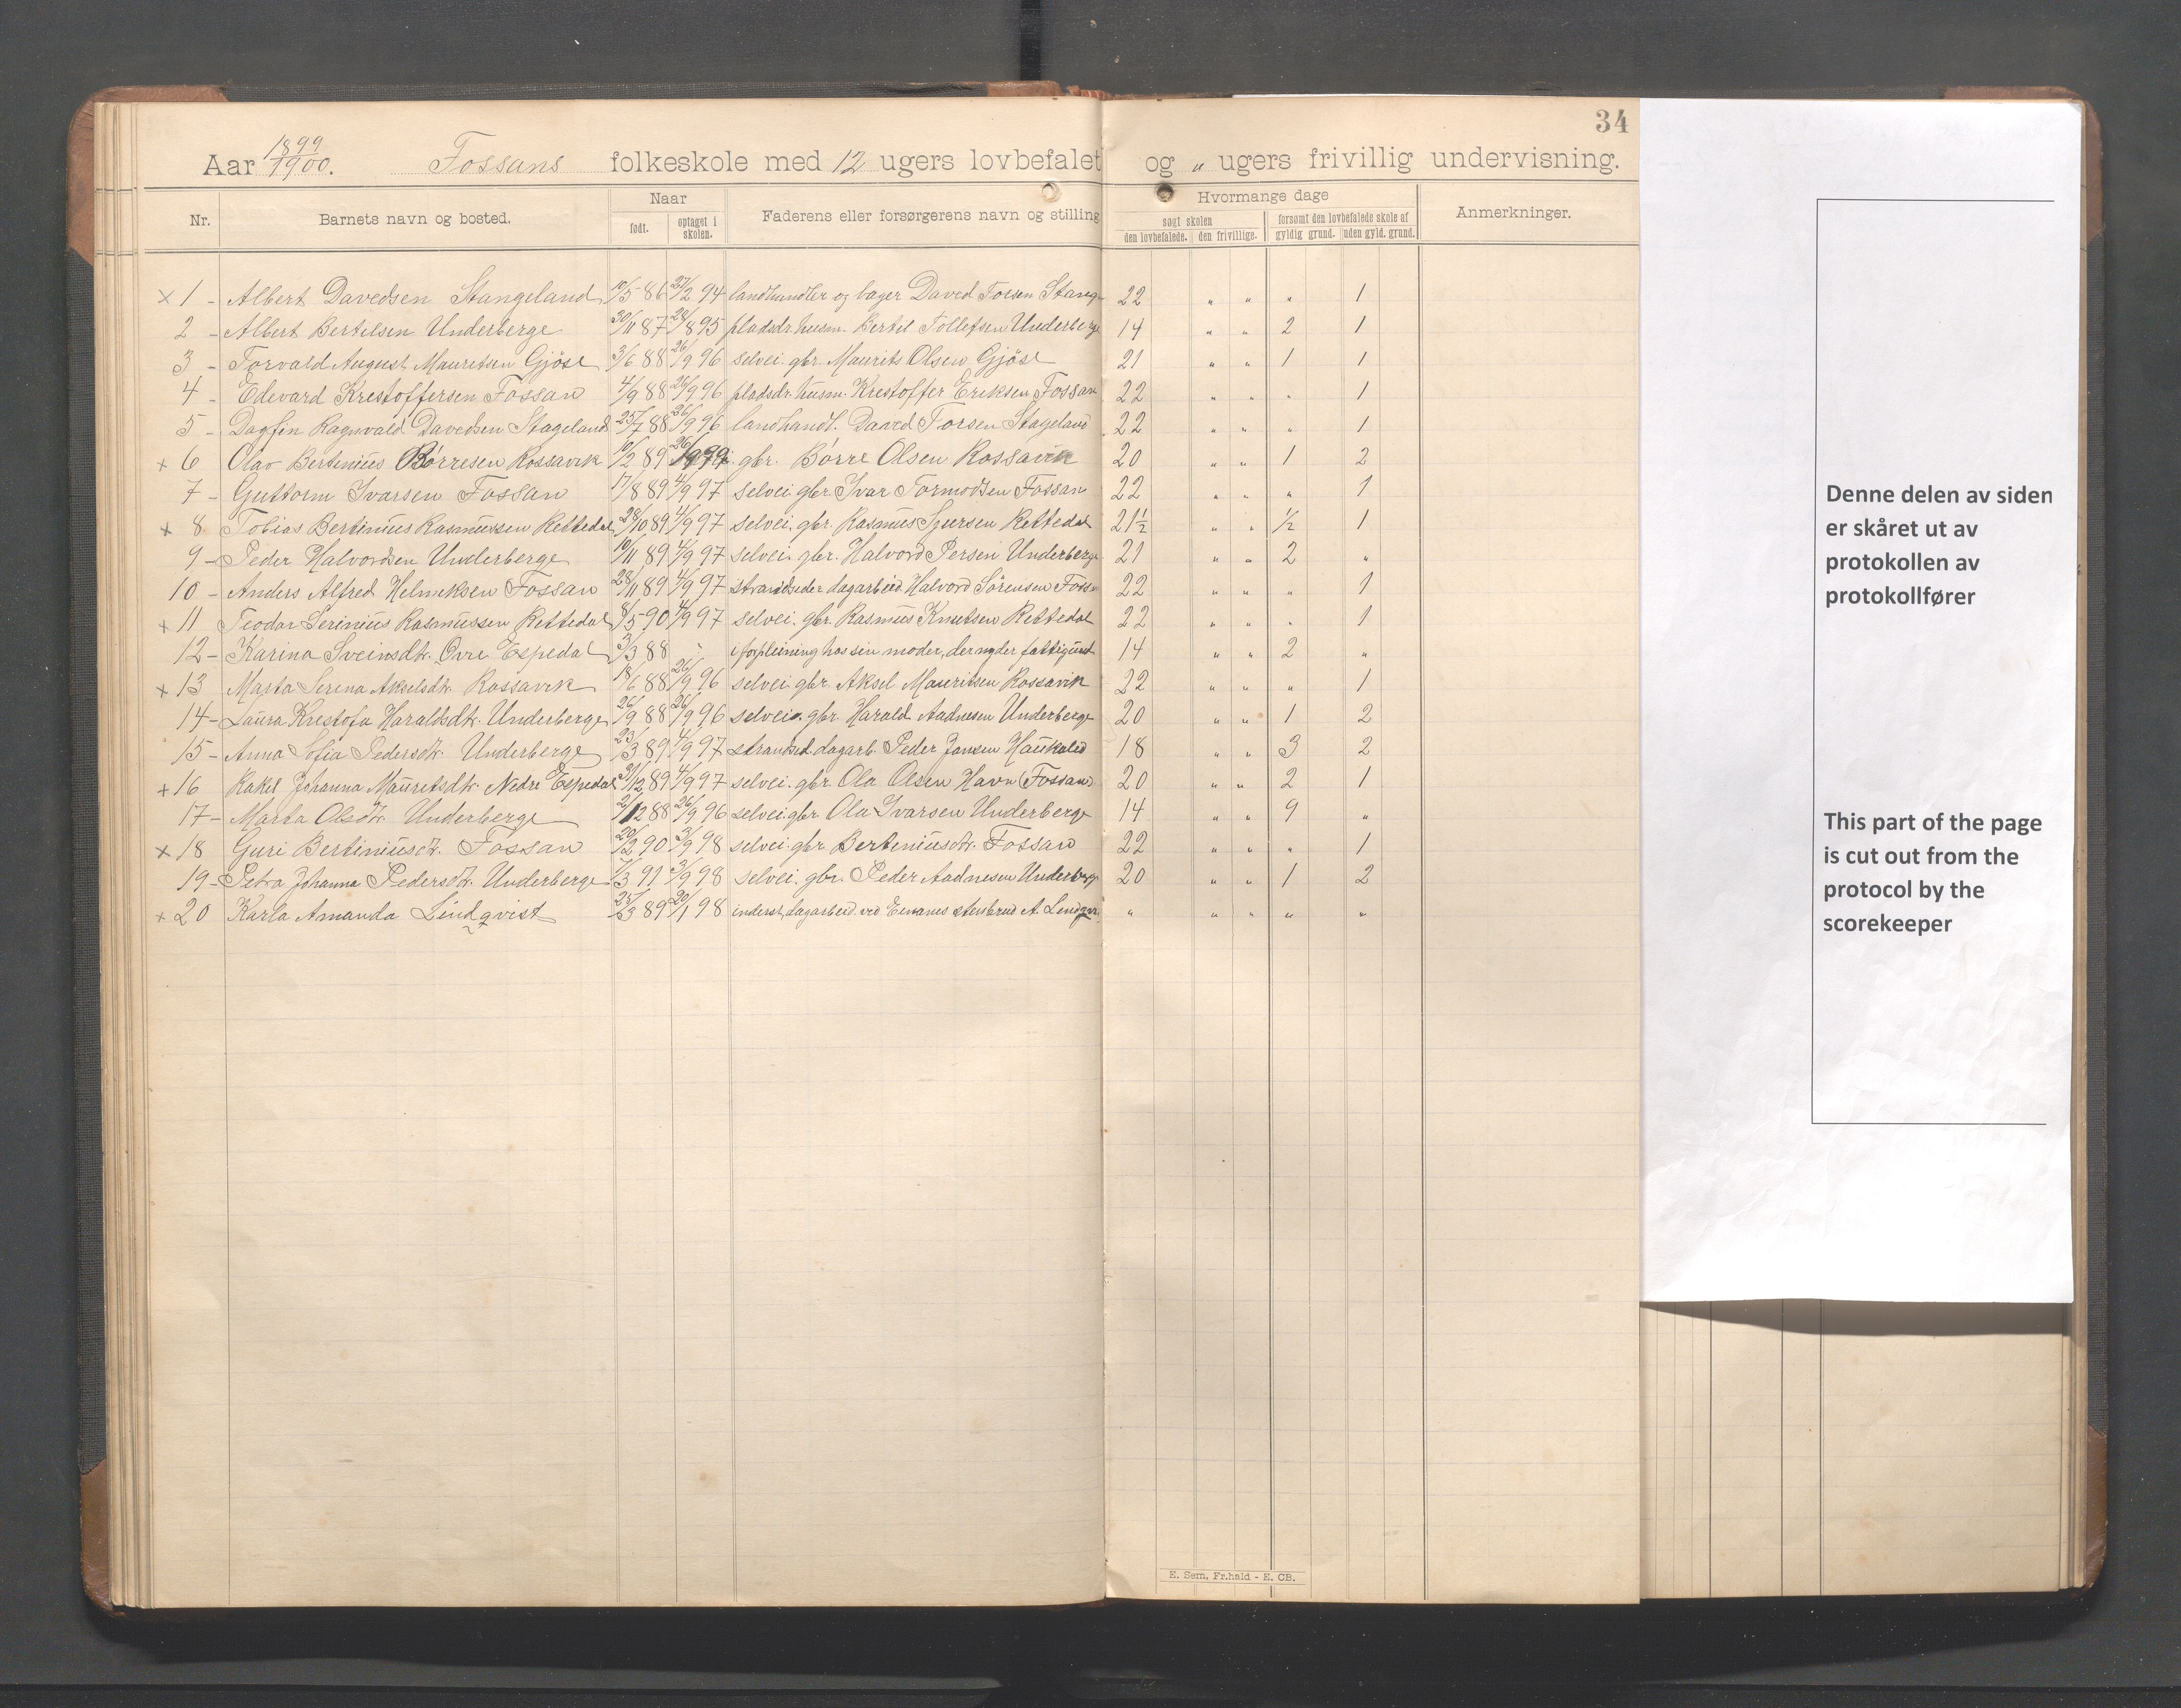 34
Aar 1899/1900. Fossans folkeskole med 12 ugers lovbefalet og „ ugers frivillig undervisning.
Nr. Barnets navn og bosted. Naar født. optaget i skolen. Faderens eller forsørgerens navn og stilling Hvormange dage søgt skolen den lovbefalede. den frivillige. forsømt den lovbefalede skole af gyldig grund. uden gyld. grund. Anmerkninger.
x 1 - Albert Davedsen Stangeland 10/5 86 27/2 94 landhandler og bager Daved Torsen Stang 22 „ „ „ 1
2 - Albert Bertilsen Underberge 30/11 87 28/8 95 pladsdr. husm. Bertil Tollefsen Underberge 14 „ „ 2 1
3 - Torvald August Mauritsen Gjöse 3/6 88 26/9 96 selvei. gbr. Maurits Olsen Gjöse 21 „ „ 1 1
4 - Edevard Krestoffersen Fossan 4/9 88 26/9 96 pladsdr. husm. Krestoffer Eriksen Fossan 22 „ „ „ 1
5 - Dagfin Ragnvald Davedsen Stageland 25/7 88 26/9 96 landhandl. Daved Torsen Stageland 22 „ „ „ 1
x 6 Olav Bertinius Börresen Rossavik 10/2 89 gbr. Börre Olsen Rossavik 20 „ „ 1 2
7 - Guttorm Ivarsen Fossan 17/8 89 4/9 97 selvei gbr. Ivar Tormodsen Fossan 22 „ „ „ 1
x 8 Tobias Bertinius Rasmussen Rettedal 28/10 89 4/9 97 selvei. gbr. Rasmus Sjursen Rettedal 21½ „ „ ½ 1
9 - Peder Halvordsen Underberge 10/11 89 4/9 97 selvei. gbr. Halvord Persen Underberge 21 „ „ 2 „
10 - Anders Alfred Helmiksen Fossan 28/11 89 4/9 97 strandseder dagarbeid. Halvord Sörensen Fossn 22 „ „ „ 1
x 11 Teodor Serinius Rasmussen Rettedal 8/5 90 4/9 97 selvei. gbr. Rasmus Knutsen Rettedal 22 „ „ „ 1
12 - Karina Sveinsdtr. Övre Espedal 3/3 88 „ i forpleining hos sin moder, der nyder fattigund 14 „ „ 2 „
x 13 Marta Serina Akselsdtr. Rossavik 18/6 88 26/9 96 selvei gbr. Aksel Mauritsen Rossavik 22 „ „ „ 1
14 - Laura Krestofa Haraldsdtr. Underberge 26/9 88 26/9 96 selvei. gbr. Harald Aadnesen Underberge 20 „ „ 1 2
15 - Anna Sofia Pedersdtr. Underberge 23/3 89 4/9 97 strandsid. dagarb. Peder Jansen Haukalid 18 „ „ 3 2
x 16 Rakel Johanna Mauritsdtr. Nedre Espedal 31/12 89 4/9 97 selvei. gbr. Ola Olsen Havn (Fossan) 20 „ „ 2 1
17 - Marta Olsdtr. Underberge 2/12 88 26/9 96 selvei. gbr. Ola Ivarsen Underberge 14 „ „ 9 „
x 18 Guri Bertiniusdtr. Fossan 20/2 90 3/9 98 selvei. gbr. Berteniusdtr. Fossan 22 „ „ „ 1
19 - Petra Johanna Pedersdtr. Underberge 7/3 91 3/9 98 selvei. gbr. Peder Aadnesen Underberge 20 „ „ 1 2
x 20 Karla Amanda Lindqvist 25/3 89 20/1 98 inderst, dagarbeid. ved stenbrud A. Lindqv. „ „ „ „ „
E. Sem, Fr.hald - E. CB.
Denne delen av siden
er skåret ut av
protokollen av
protokollfører
This part of the page
is cut out from the
protocol by the
scorekeeper